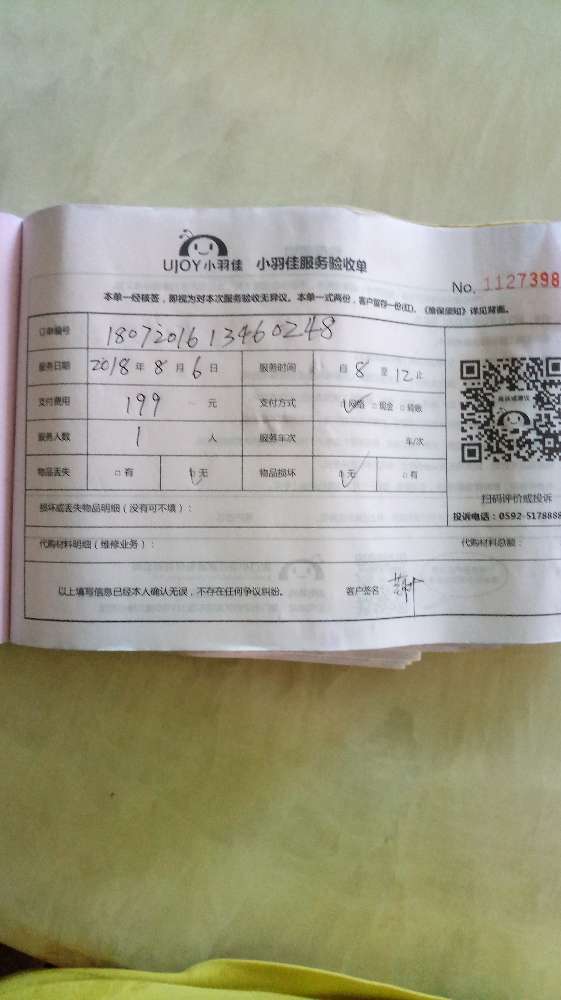 UJOY小羽佳 小羽佳服务验收单
No. 1127398
本单一经核签，即视为对本次服务验收无异议。本单一式两份，客户留存一份(红)，《维保须知》详见背面。
订单编号 1807201613460248
服务日期 2018年8月6日 服务时间 自8至12止
支付费用 199元 支付方式 ☑网络 □现金 □验收
服务人数 1人 服务车次 车/次
物品丢失 □有 ☑无 物品损坏 ☑无 □有
扫码评价或投诉
损坏或丢失物品明细（没有可不填）：
投诉电话：0592-5178888
代购材料明细（维修业务）： 代购材料总额：
以上填写信息已经本人确认无误，不存在任何争议纠纷。 客户签名：